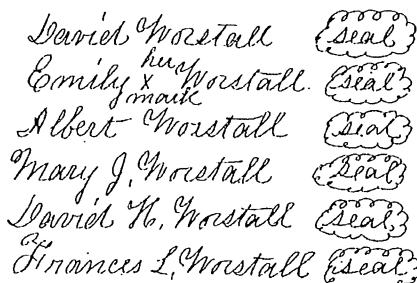 David Worstall seal
her
Emily x Worstall. seal
mark
Albert Worstall seal
Mary J. Worstall seal
David H. Worstall seal
Frances L. Worstall seal